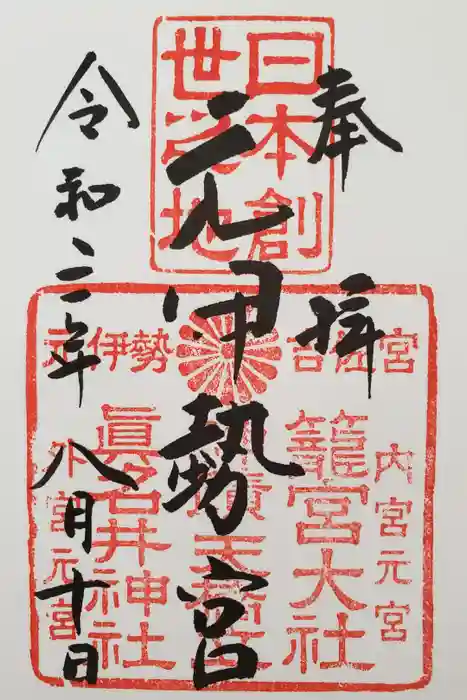 奉拝
元伊勢宮
令和二年八月十日
日本創
世
地
元伊勢 吉佐宮
内宮元宮
籠宮大社
天橋立
眞名井神社
外宮元宮